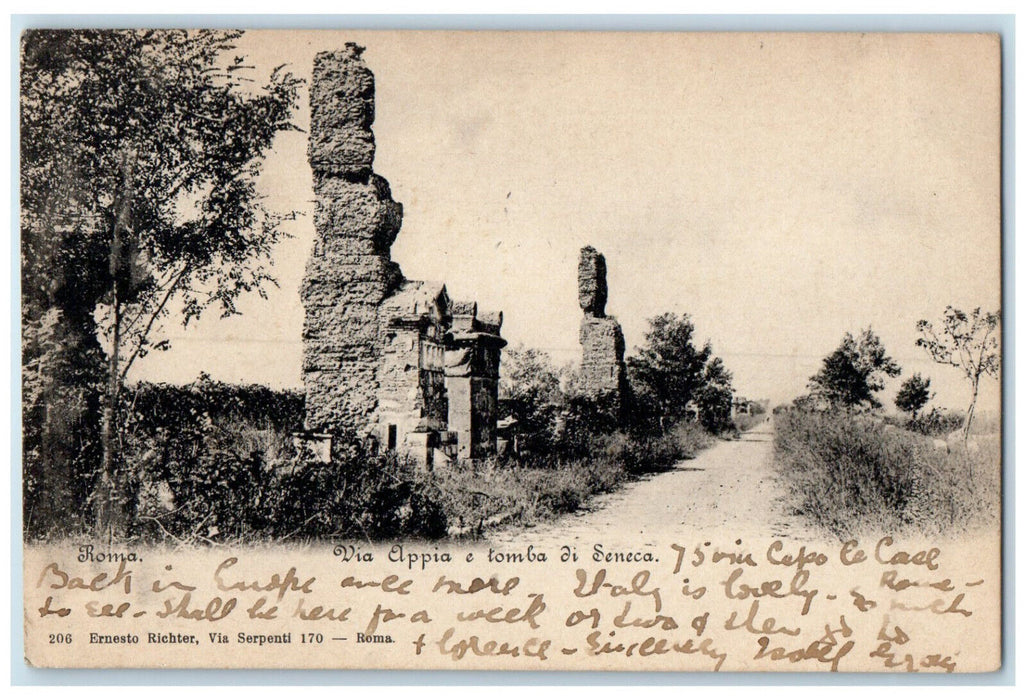 Roma. Via Appia e tomba di Seneca. 75 via Capo le Case
Back in Europe once more. Italy is lovely - so much Rome -
to see - shall be here for a week or two & then go to
206 Ernesto Richter, Via Serpenti 170 — Roma.
Florence - Sincerely